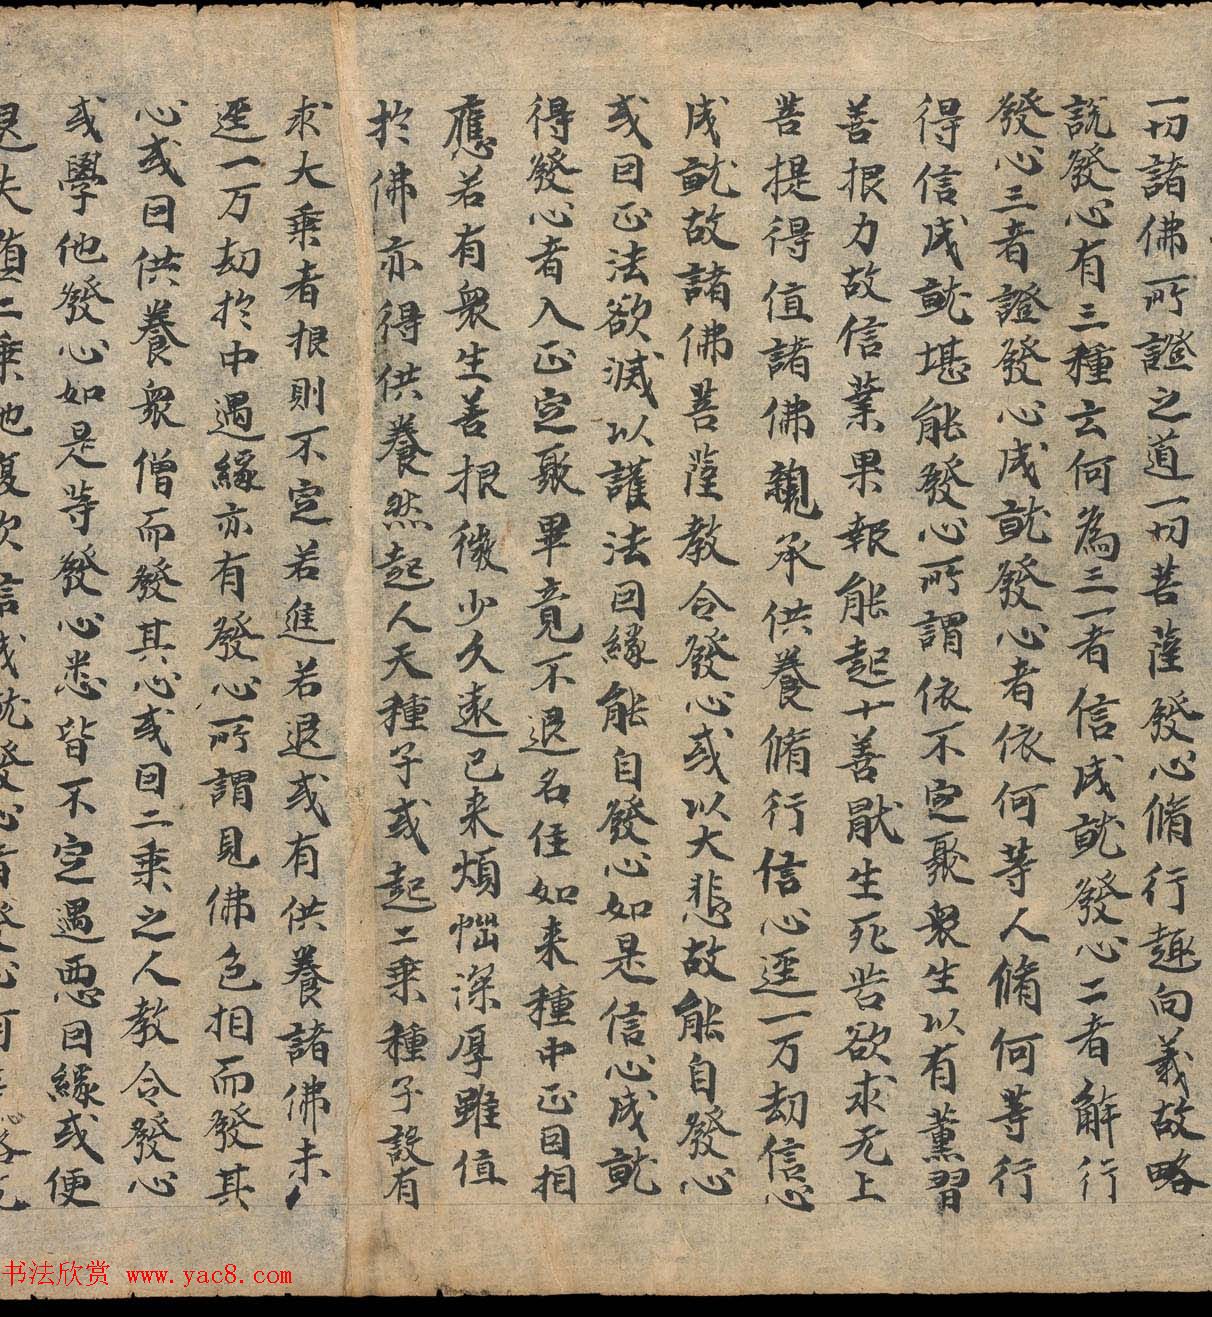 一切諸佛所證之道一切菩薩發心脩行趣向義故略
說發心有三種云何為三一者信成就發心二者解行
發心三者證發心成就發心者依何等人脩何等行
得信成就堪能發心所謂依不定聚衆生以有薰習
善根力故信業果報能起十善猒生死苦欲求无上
菩提得值諸佛親承供養脩行信心逕一万劫信心
成就故諸佛菩薩教令發心或以大悲故能自發心
或因正法欲滅以護法因緣能自發心如是信心成就
得發心者入正定聚畢竟不退名住如来種中正因相
應若有衆生善根微少久遠已来煩惱深厚雖值
於佛亦得供養然起人天種子或起二乘種子設有
求大乘者根則不定若進若退或有供養諸佛未
逕一万劫於中遇緣亦有發心所謂見佛色相而發其
心或因供養衆僧而發其心或因二乘之人教令發心
或學他發心如是等發心悉皆不定遇惡因緣或便
退失墮二乘地復次信成就發心者發心何
书法欣赏 www.yac8.com